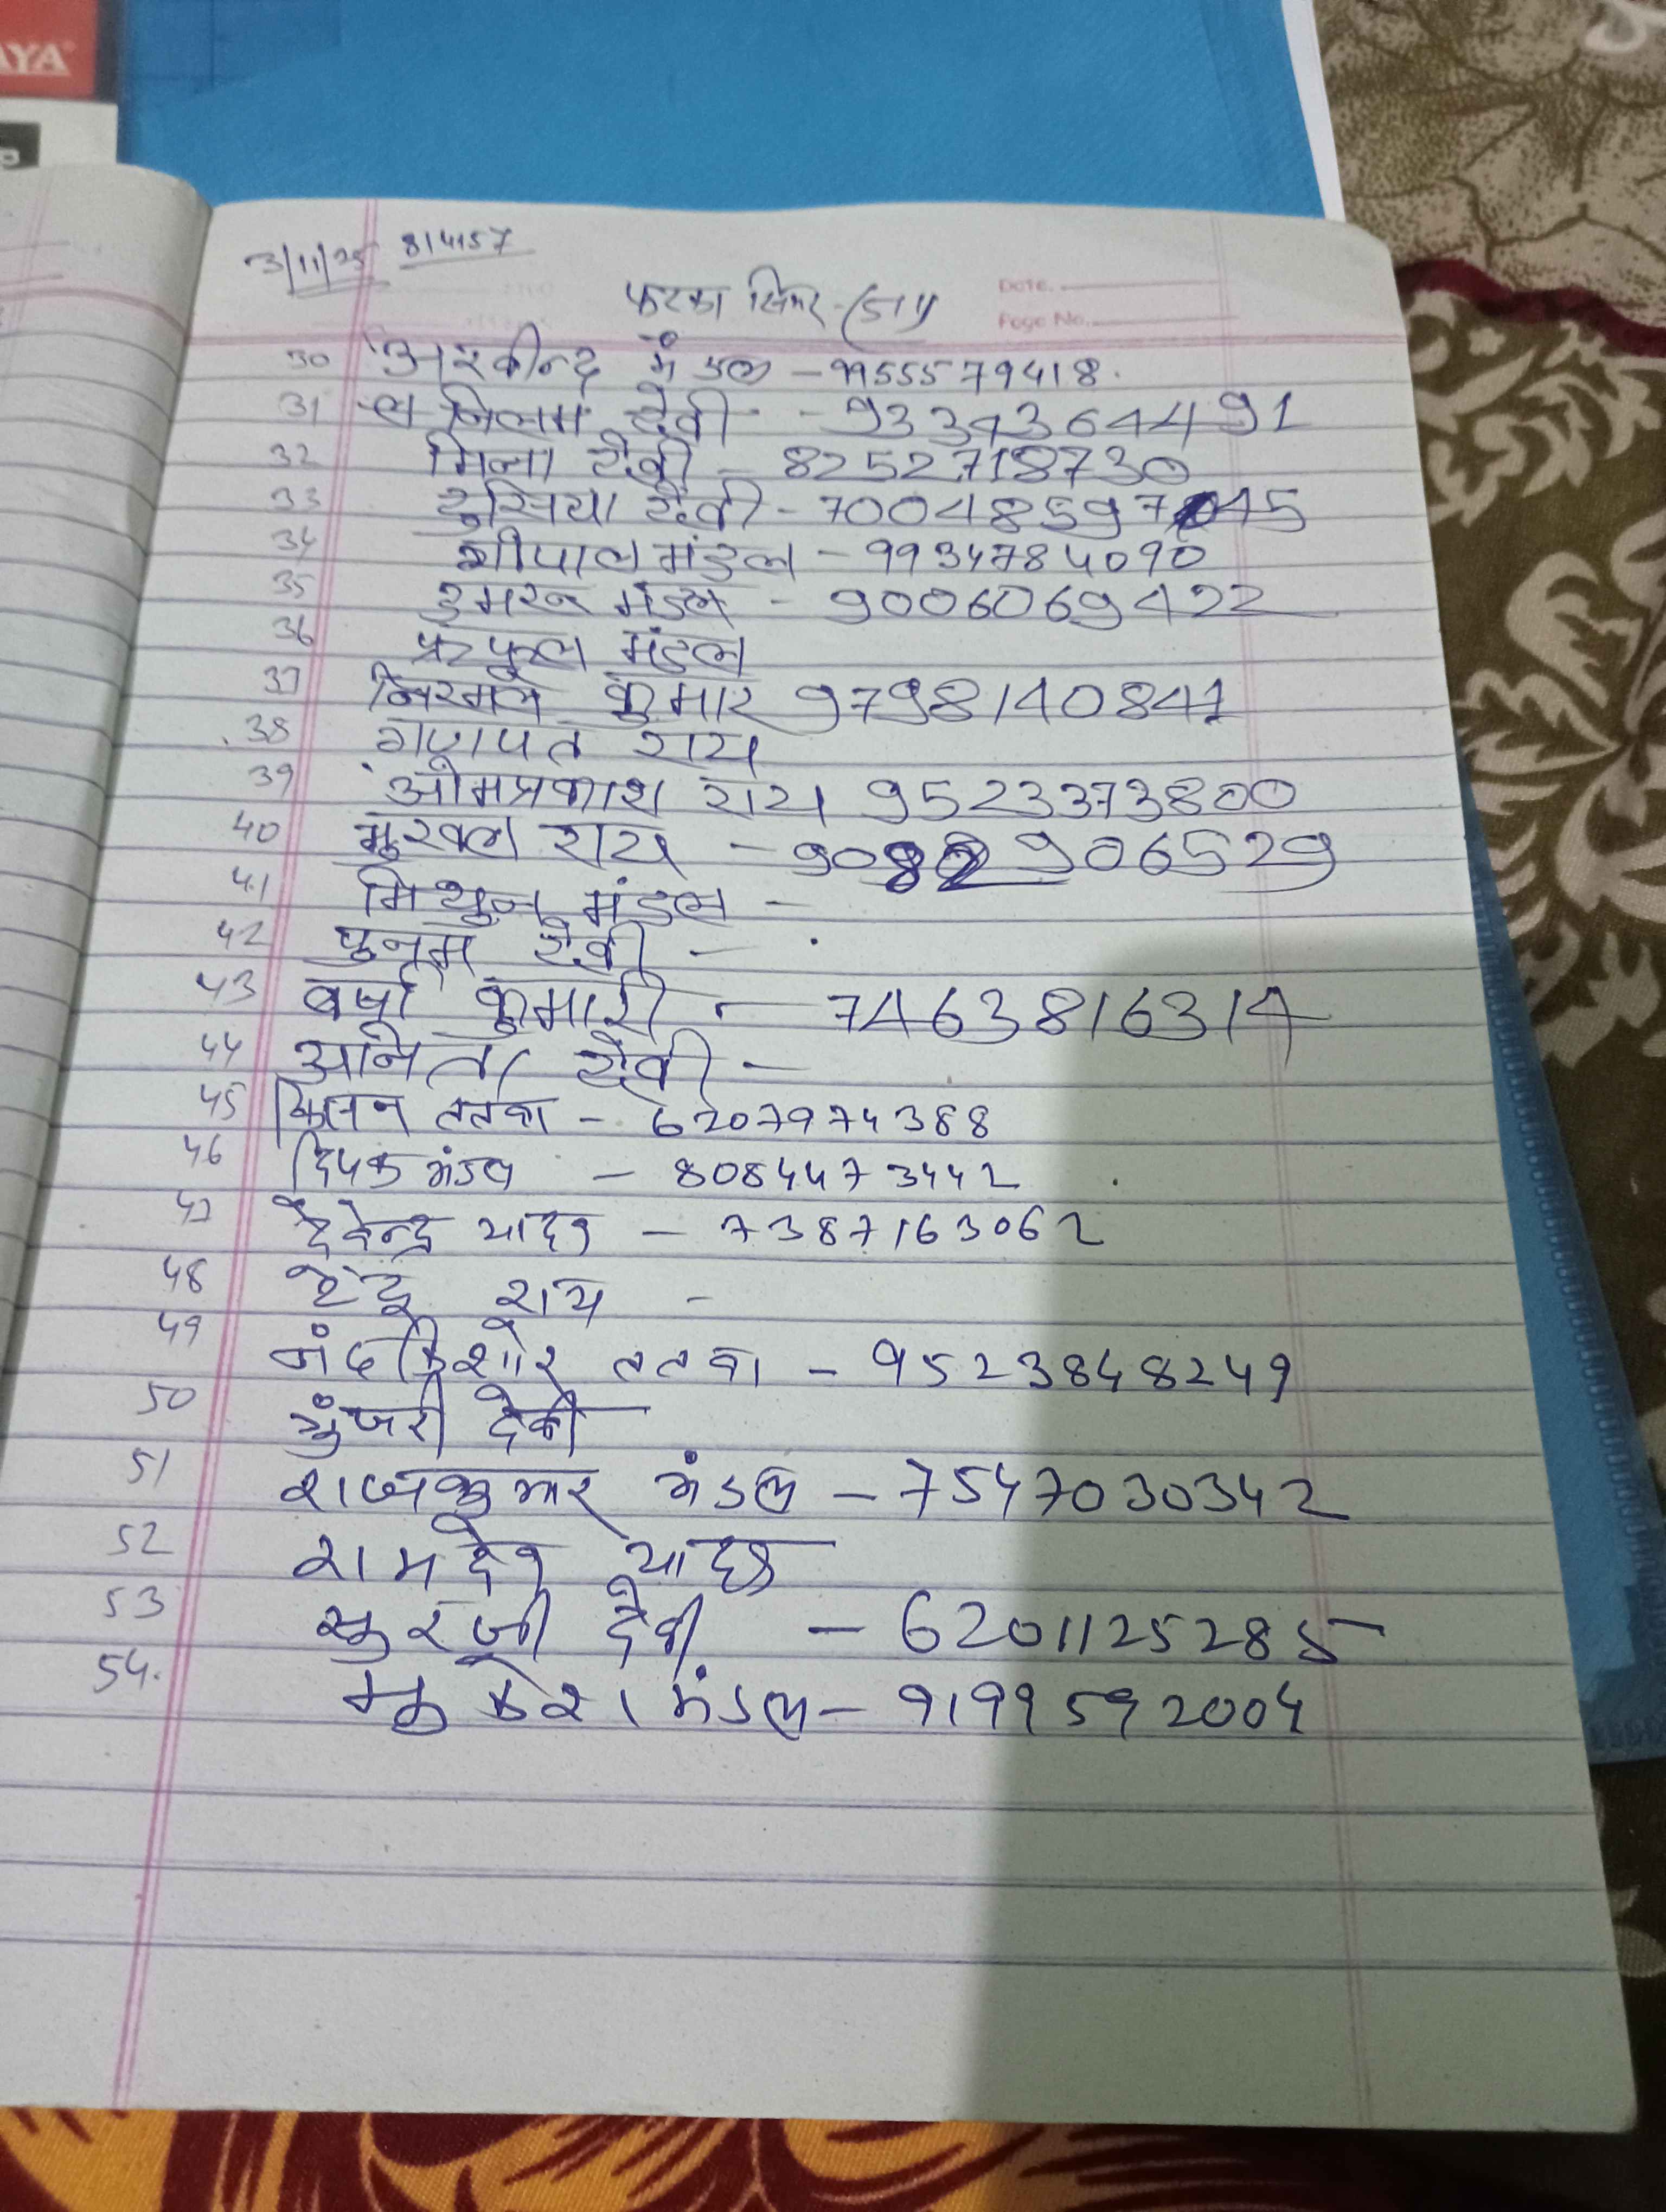 AYA
3/11/25 814157
Date.
फटका सिमर-(511)
Page No.
30 अरवीन्द मंडल - 9955579418.
31 निलम देवी - 93343644491
32 मिना देवी - 82527718730
33 दुसिया देवी - 70048597045
34 श्रीपाल मंडल - 9934784090
35 इमरन मंडल - 9006069422
36 प्रफुल मंडल
37 निरमल कुमार 9798140841
38 गणपत राय
39 ओमप्रकाश राय 9523373800
40 मुरवल राय - 9082906529
41 मिथुन मंडल -
42 पुनम देवी -
43 वर्षा कुमारी - 7463816314
44 अनिता देवी -
45 ततवा - 6207974388
46 दिपक मंडल - 8084473442
47 देवेन्द्र यादव - 7387163062
48 राय -
49 नंदकिशोर ततवा - 9523848249
50 मुंजरी देवी
51 राजकुमार मंडल - 7547030342
52 रामदेव यादव
53 सुरजी देवी - 6201125285
54. मुकेश मंडल - 9199592004